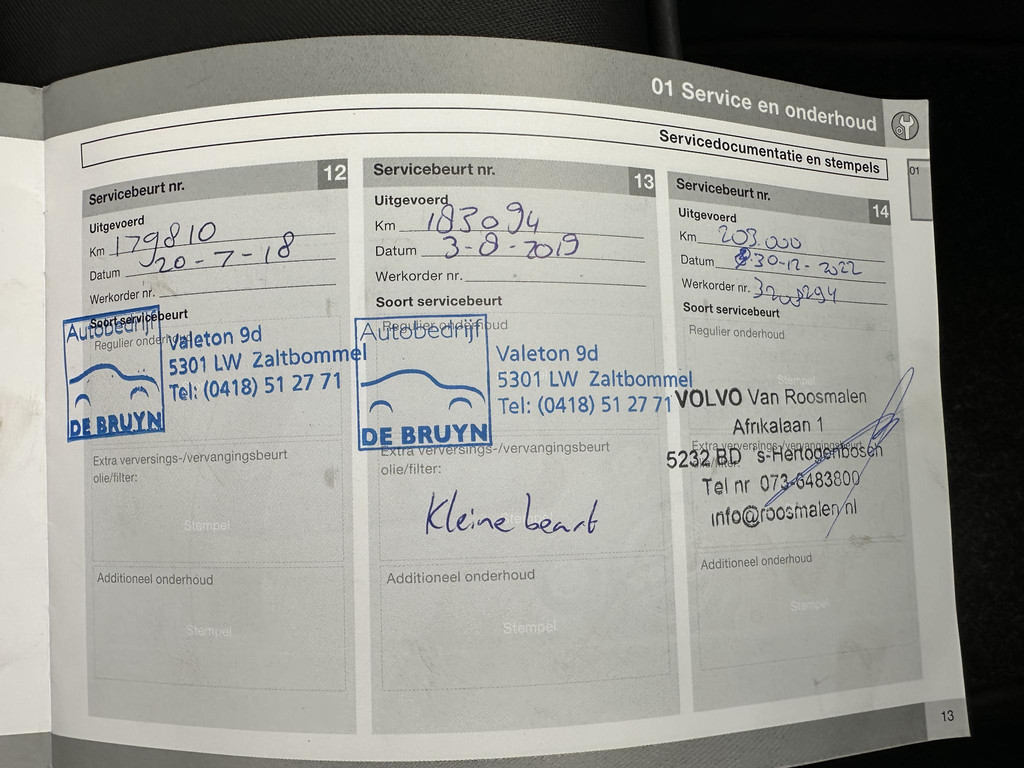 01 Service en onderhoud
Servicedocumentatie en stempels
01
Servicebeurt nr. 12
Uitgevoerd
Km 179810
Datum 20-7-18
Werkorder nr.
Soort servicebeurt
Regulier onderhoud
Autobedrijf
DE BRUYN
Valeton 9d
5301 LW Zaltbommel
Tel: (0418) 51 27 71
Extra verversings-/vervangingsbeurt
olie/filter:
Stempel
Additioneel onderhoud
Stempel
Servicebeurt nr. 13
Uitgevoerd
Km 183094
Datum 3-8-2019
Werkorder nr.
Soort servicebeurt
Regulier onderhoud
Autobedrijf
DE BRUYN
Valeton 9d
5301 LW Zaltbommel
Tel: (0418) 51 27 71
Extra verversings-/vervangingsbeurt
olie/filter:
Kleine beurt
Stempel
Additioneel onderhoud
Stempel
Servicebeurt nr. 14
Uitgevoerd
Km 203.000
Datum 30-12-2022
Werkorder nr.
Soort servicebeurt
Regulier onderhoud
Stempel
VOLVO Van Roosmalen
Afrikalaan 1
Extra verversings-/vervangingsbeurt
olie/filter:
5232 BD 's-Hertogenbosch
Tel nr 073-6483800
info@roosmalen.nl
Additioneel onderhoud
Stempel
13